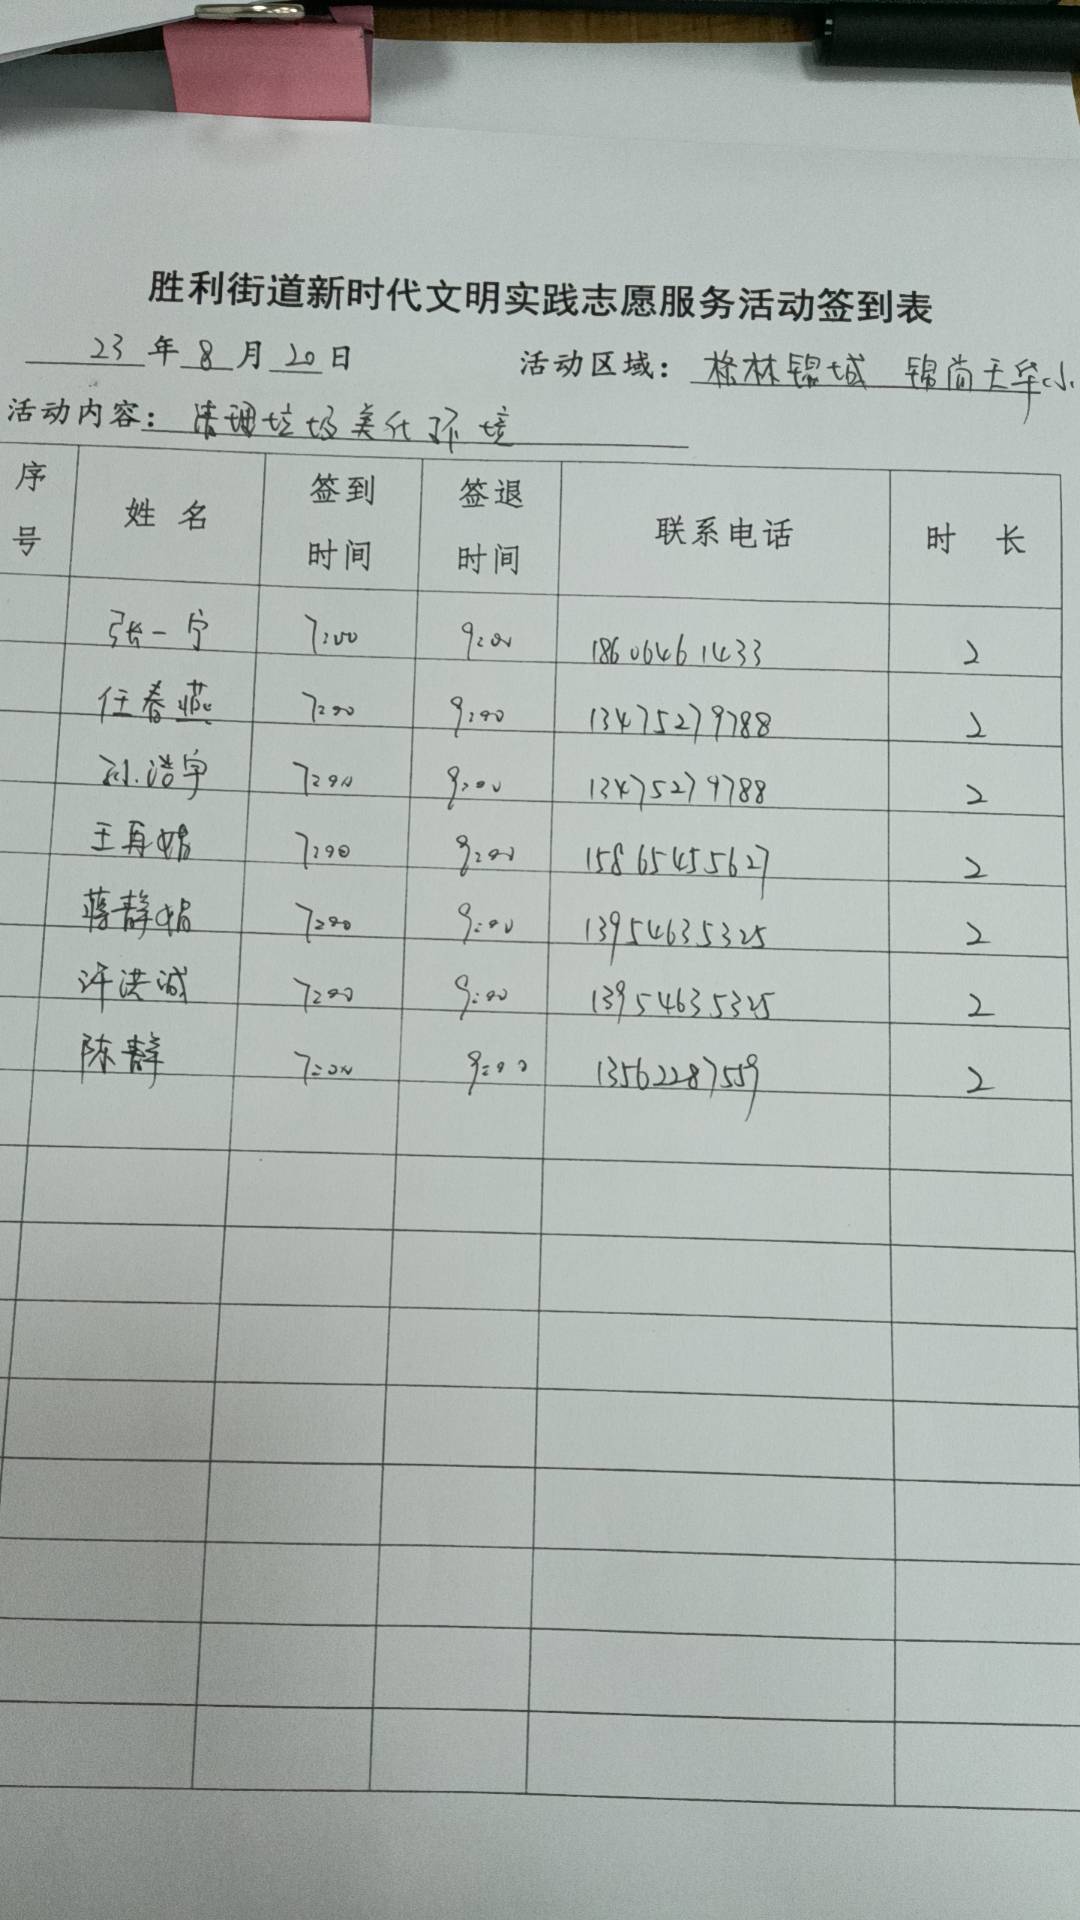 胜利街道新时代文明实践志愿服务活动签到表
23年8月20日 活动区域：格林锦城 锦尚天华小
活动内容：清理垃圾美化环境
序号 姓名 签到时间 签退时间 联系电话 时长
张一宁 7:00 9:00 18606461433 2
任春燕 7:00 9:00 13475279788 2
孙浩宇 7:00 9:00 13475279788 2
王再娟 7:00 9:00 15865455627 2
蒋静娟 7:00 9:00 13954635325 2
许洪诚 7:00 9:00 13954635325 2
陈静 7:00 9:00 13562287559 2